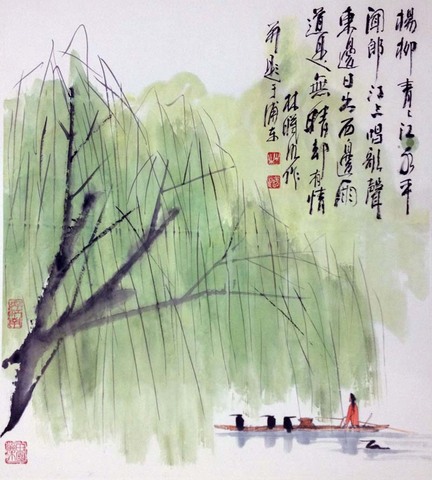 楊柳青々江水平
聞郎江上唱歌聲
東邊日出西邊雨
道是無晴却有情
林曦明作
并题于浦东